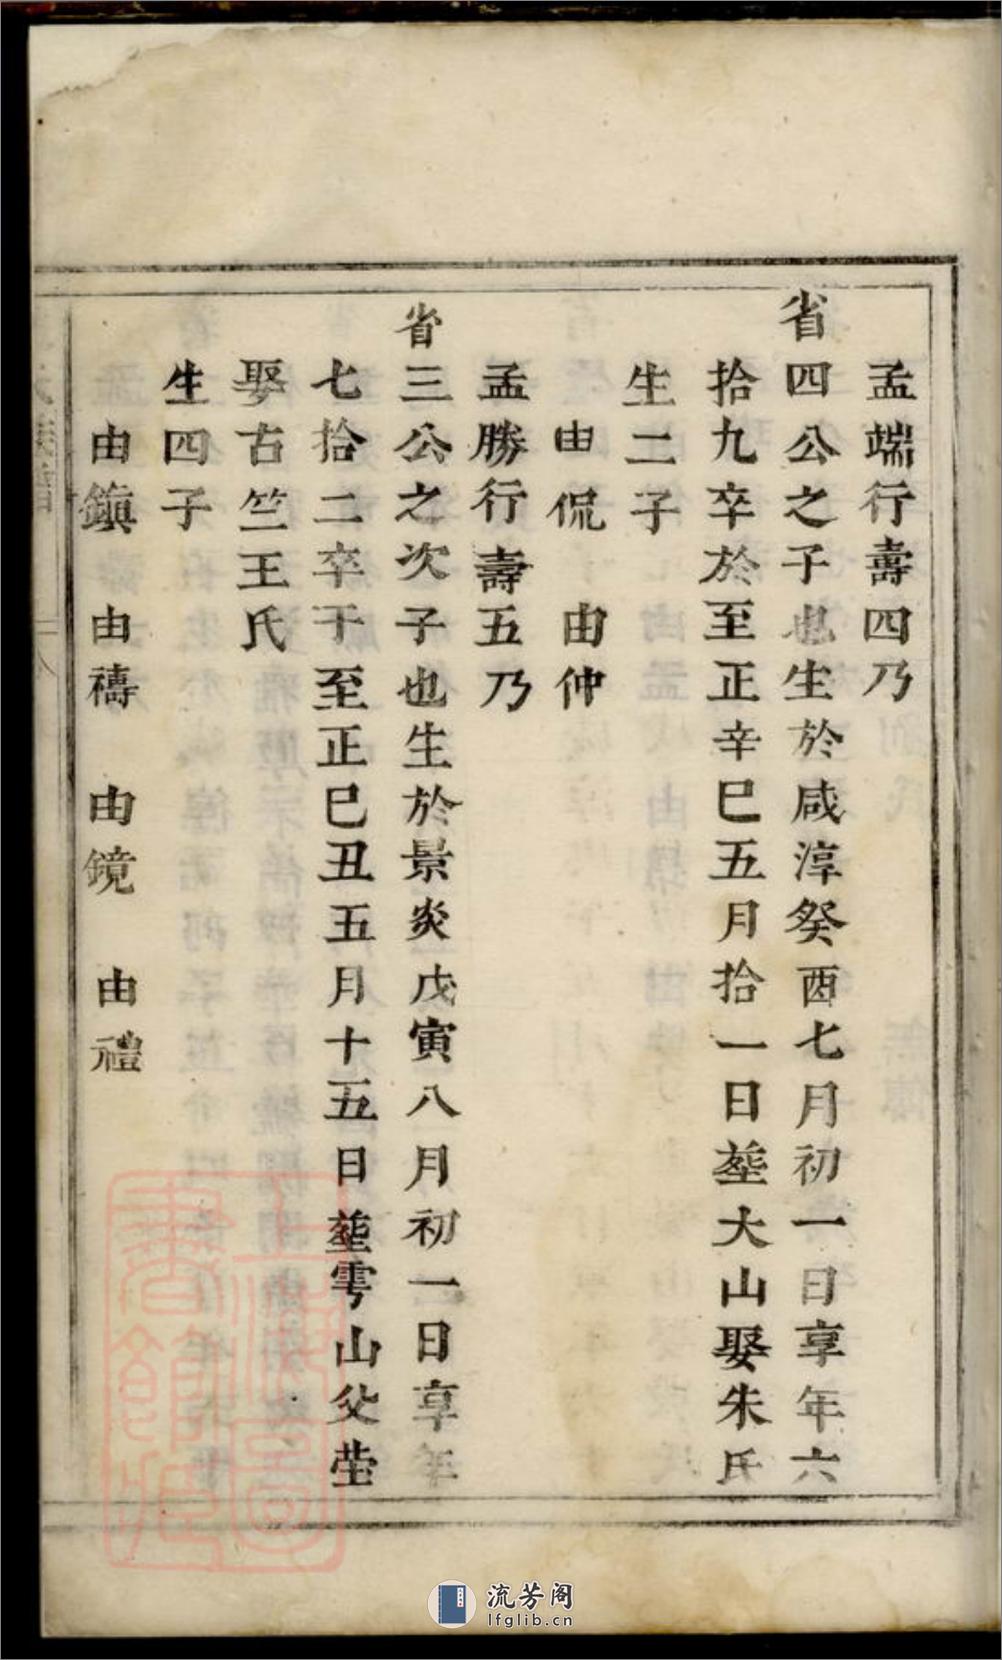 孟端行壽四乃
省四公之子也生於咸淳癸酉七月初一日享年六
拾九卒於至正辛巳五月拾一日塟大山娶朱氏
生二子
由侃　由仲
孟勝行壽五乃
省三公之次子也生於景炎戊寅八月初一日享年
七拾二卒于至正巳丑五月十五日塟雩山父塋
娶古竺王氏
生四子
由鎮　由禱　由鏡　由禮
流芳阁
lfglib.cn